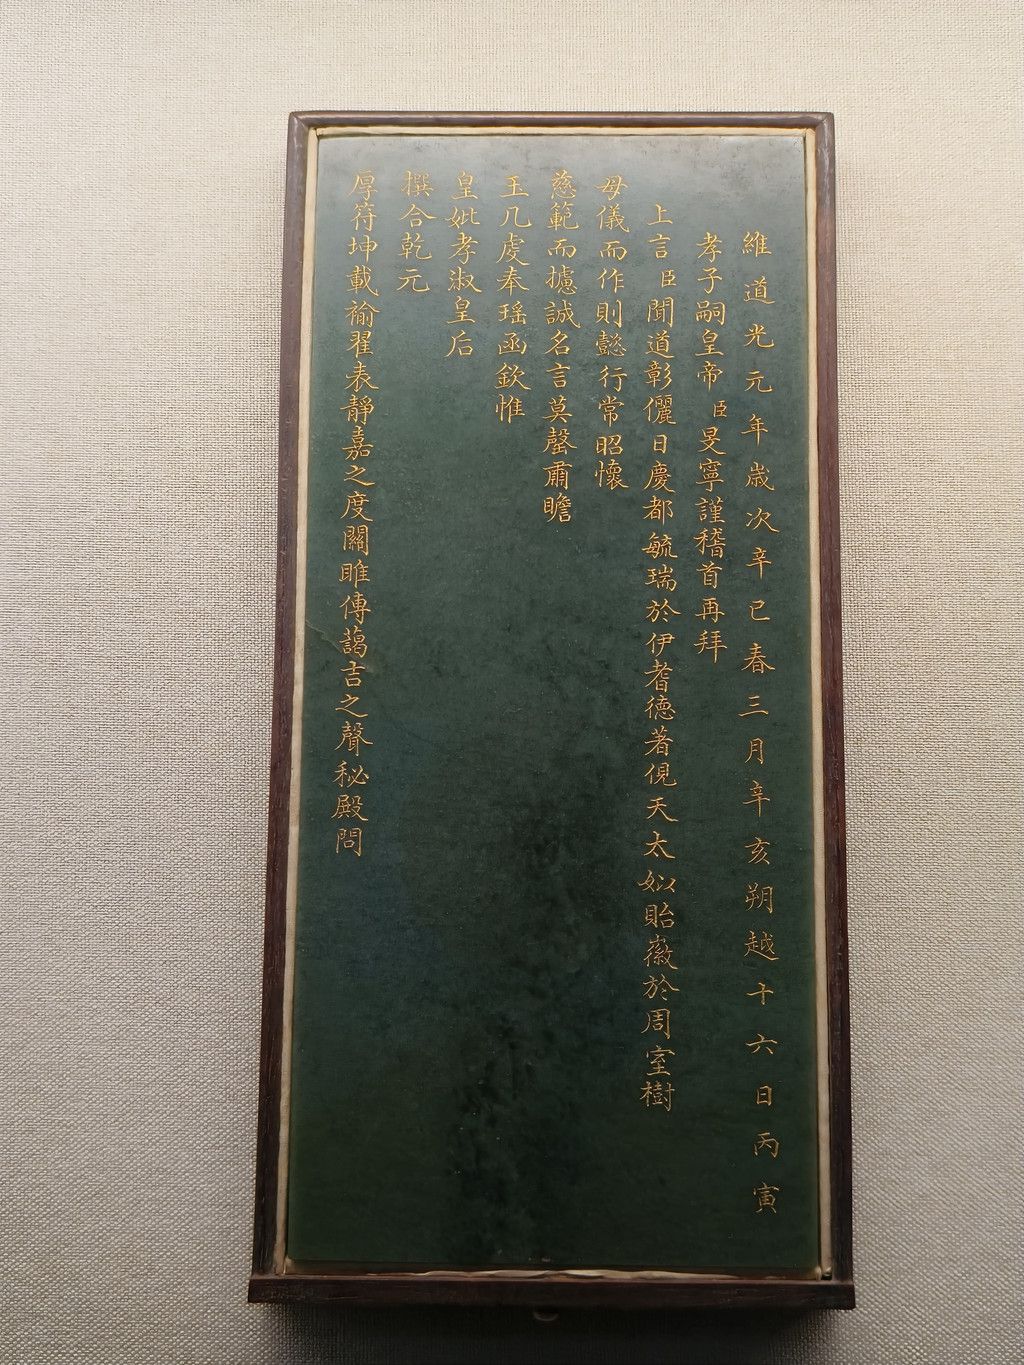 維道光元年歲次辛巳春三月辛亥朔越十六日丙寅
孝子嗣皇帝臣旻寧謹稽首再拜
上言臣聞道彰儷日慶都毓瑞於伊耆德著俔天太姒貽徽於周室樹
母儀而作則懿行常昭懷
慈範而攄誠名言莫罄甭瞻
玉几虔奉瑶函欽惟
皇妣孝淑皇后
撰合乾元
厚符坤載褕翟表靜嘉之度關雎傳藹吉之聲秘殿問